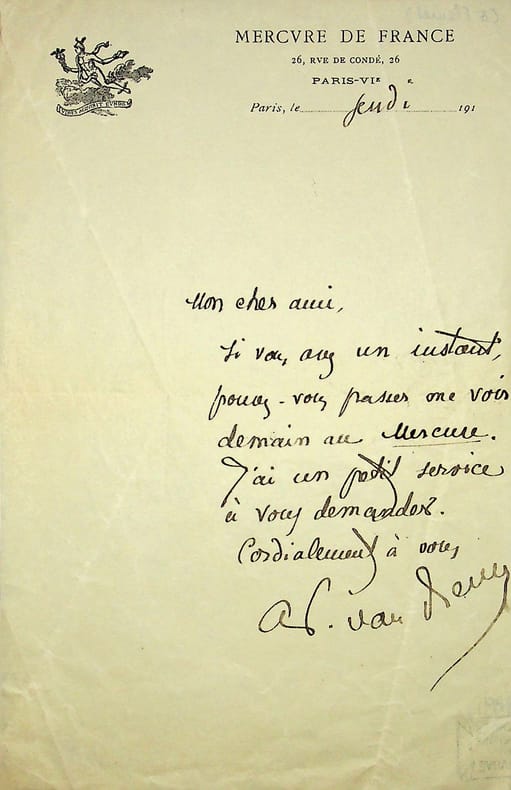 MERCVRE DE FRANCE
26, RVE DE CONDÉ, 26
PARIS-VIᵉ
Paris, le jeudi 191
VIRES ACQUIRIT EUNDO
Mon cher ami,
Si vous avez un instant,
pouvez-vous passer me voir
demain au Mercure.
J'ai un petit service
à vous demander.
Cordialement à vous
A. van